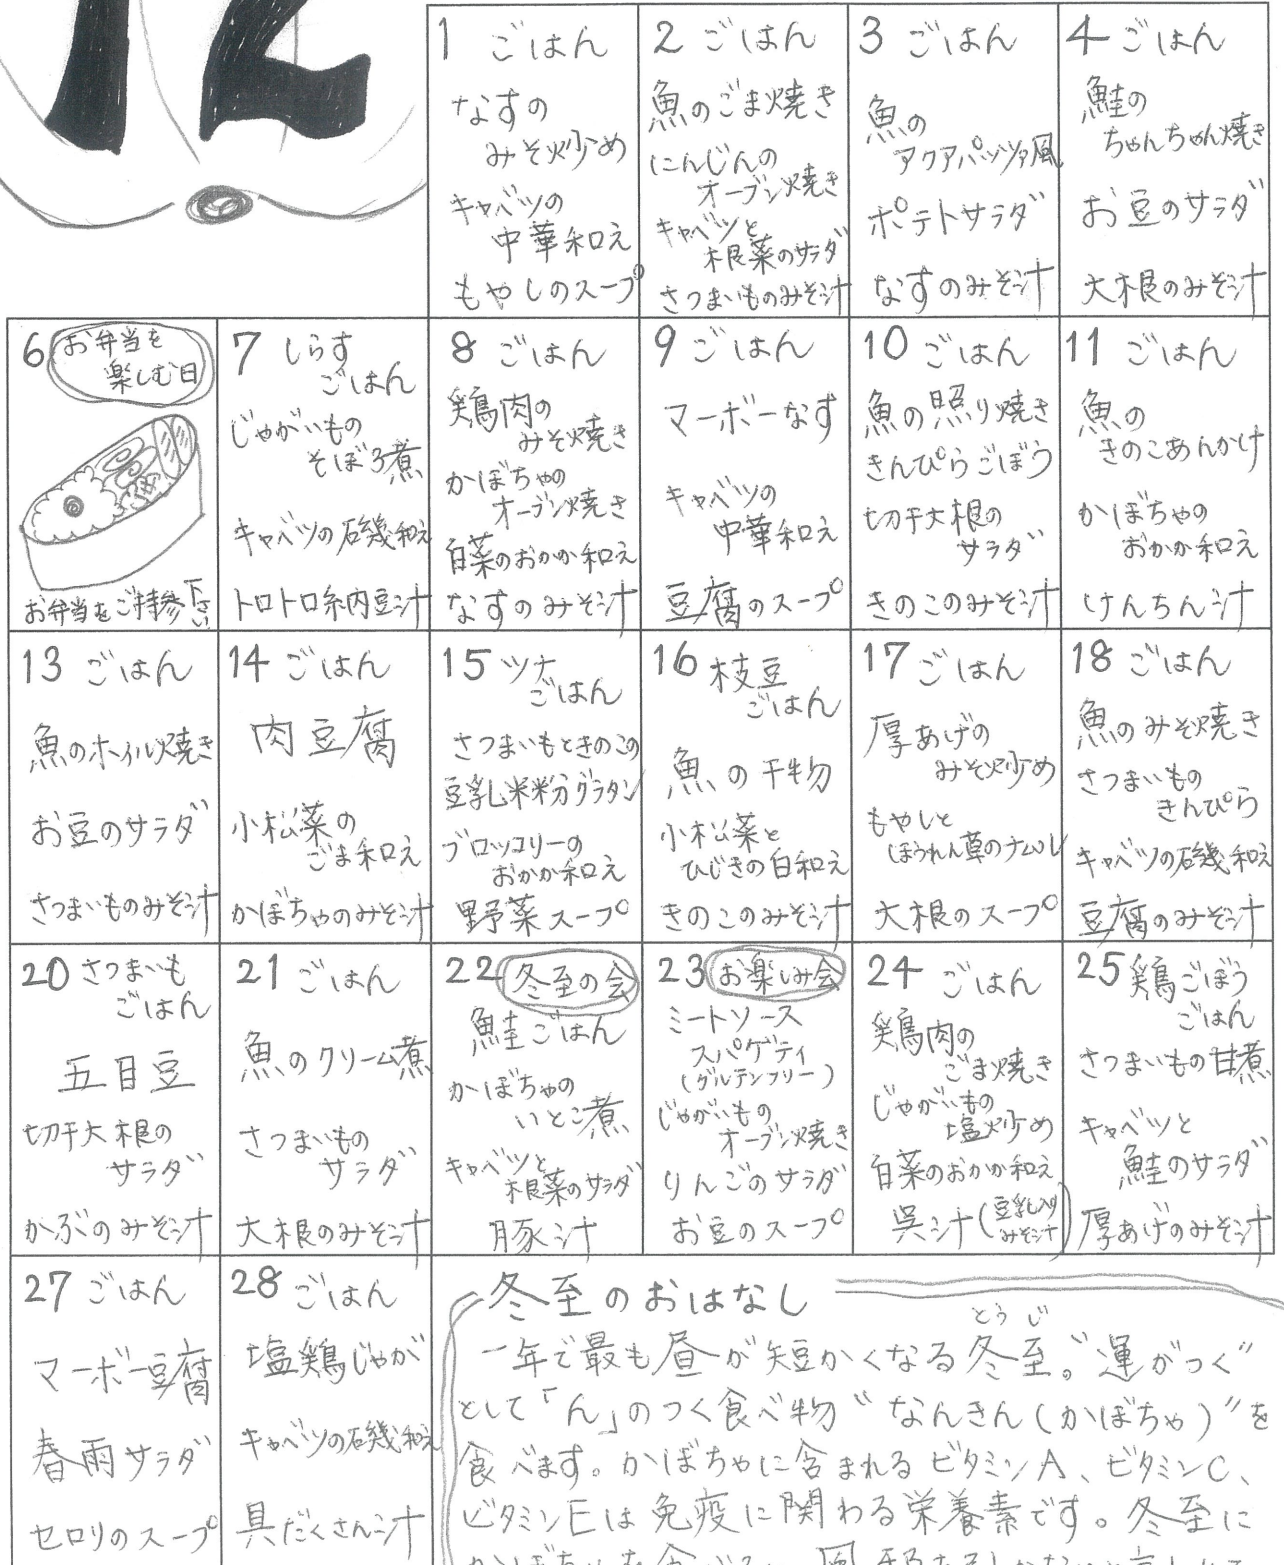 12
1 ごはん
なすの
みそ炒め
キャベツの
中華和え
もやしのスープ
2 ごはん
魚のごま焼き
にんじんの
オーブン焼き
キャベツと
根菜のサラダ
さつまいものみそ汁
3 ごはん
魚の
アクアパッツァ風
ポテトサラダ
なすのみそ汁
4 ごはん
鮭の
ちゃんちゃん焼き
お豆のサラダ
大根のみそ汁
6 お弁当を
楽しむ日
お弁当をご持参下さい
7 しらす
ごはん
じゃがいもの
そぼろ煮
キャベツの磯和え
トロトロ納豆汁
8 ごはん
鶏肉の
みそ焼き
かぼちゃの
オーブン焼き
白菜のおかか和え
なすのみそ汁
9 ごはん
マーボーなす
キャベツの
中華和え
豆腐のスープ
10 ごはん
魚の照り焼き
きんぴらごぼう
切干大根の
サラダ
きのこのみそ汁
11 ごはん
魚の
きのこあんかけ
かぼちゃの
おかか和え
けんちん汁
13 ごはん
魚のホイル焼き
お豆のサラダ
さつまいものみそ汁
14 ごはん
肉豆腐
小松菜の
ごま和え
かぼちゃのみそ汁
15 ツナ
ごはん
さつまいもときのこの
豆乳米粉グラタン
ブロッコリーの
おかか和え
野菜スープ
16 枝豆
ごはん
魚の干物
小松菜と
ひじきの白和え
きのこのみそ汁
17 ごはん
厚あげの
みそ炒め
もやしと
ほうれん草のナムル
大根のスープ
18 ごはん
魚のみそ焼き
さつまいもの
きんぴら
キャベツの磯和え
豆腐のみそ汁
20 さつまいも
ごはん
五目豆
切干大根の
サラダ
かぶのみそ汁
21 ごはん
魚のクリーム煮
さつまいもの
サラダ
大根のみそ汁
22 冬至の会
鮭ごはん
かぼちゃの
いとこ煮
キャベツと
根菜のサラダ
豚汁
23 お楽しみ会
ミートソース
スパゲティ
(グルテンフリー)
じゃがいもの
オーブン焼き
りんごのサラダ
お豆のスープ
24 ごはん
鶏肉の
ごま焼き
じゃがいもの
塩炒め
白菜のおかか和え
呉汁(豆乳入り
みそ汁)
25 鶏ごぼう
ごはん
さつまいもの甘煮
キャベツと
鮭のサラダ
厚あげのみそ汁
27 ごはん
マーボー豆腐
春雨サラダ
セロリのスープ
28 ごはん
塩鶏じゃが
キャベツの磯和え
具だくさん汁
冬至のおはなし
とうじ
一年で最も昼が短かくなる冬至。〝運がつく〟
として「ん」のつく食べ物〝なんきん(かぼちゃ)〟を
食べます。かぼちゃに含まれるビタミンA、ビタミンC、
ビタミンEは免疫に関わる栄養素です。冬至に